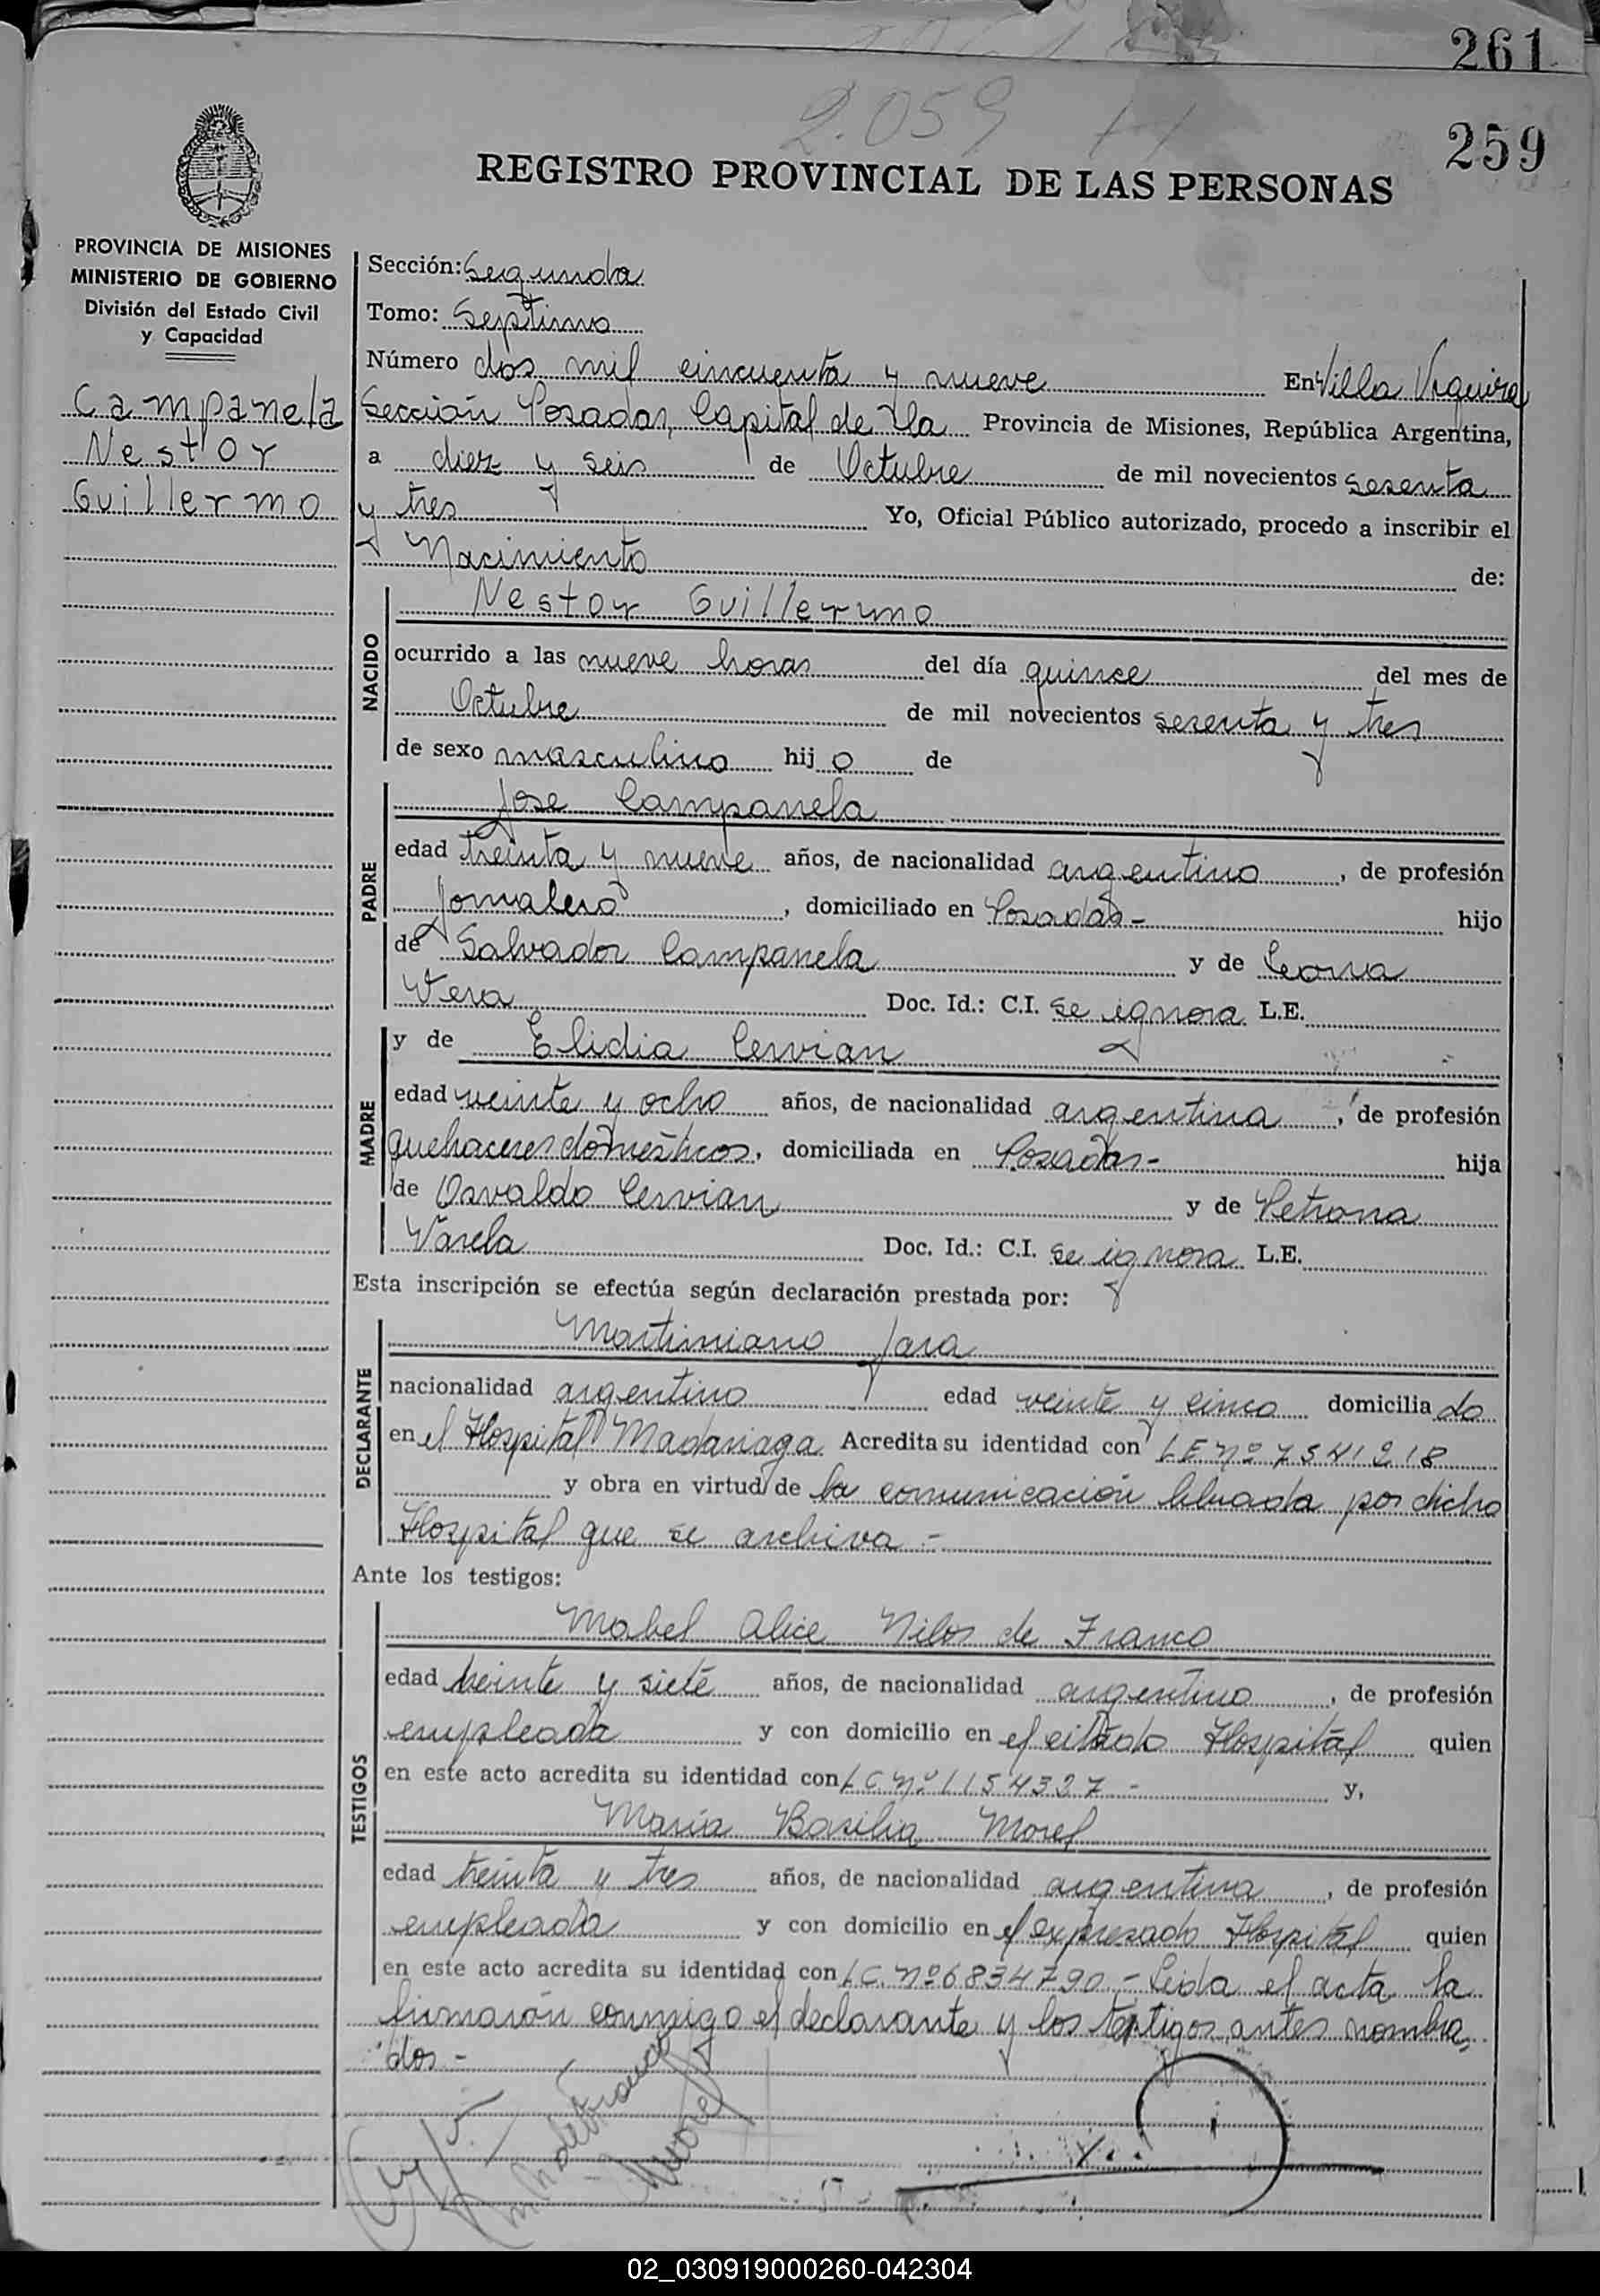 261
2.059
259
REGISTRO PROVINCIAL DE LAS PERSONAS
PROVINCIA DE MISIONES
MINISTERIO DE GOBIERNO
División del Estado Civil
y Capacidad
Campanela
Nestor
Guillermo
Sección: Segunda
Tomo: Septimo
Número dos mil cincuenta y nueve En Villa Urquiza
Sección Posadas, Capital de la Provincia de Misiones, República Argentina,
a diez y seis de Octubre de mil novecientos sesenta
y tres Yo, Oficial Público autorizado, procedo a inscribir el
Nacimiento de:
NACIDO
Nestor Guillermo
ocurrido a las nueve horas del día quince del mes de
Octubre de mil novecientos sesenta y tres
de sexo masculino hijo de
PADRE
Jose Campanela
edad treinta y nueve años, de nacionalidad argentino, de profesión
Jornalero, domiciliado en Posadas- hijo
de Salvador Campanela y de Leona
Vera Doc. Id.: C.I. se ignora L.E.
MADRE
y de Elidia Cervian
edad veinte y ocho años, de nacionalidad argentina, de profesión
quehaceres domésticos, domiciliada en Posadas- hija
de Osvaldo Cervian y de Petrona
Varela Doc. Id.: C.I. se ignora L.E.
Esta inscripción se efectúa según declaración prestada por:
DECLARANTE
Martiniano Jara
nacionalidad argentino edad veinte y cinco domiciliado
en el Hospital Madariaga Acredita su identidad con L E Nº 7541218
y obra en virtud de la comunicación librada por dicho
Hospital que se archiva.-
Ante los testigos:
TESTIGOS
Mabel Alice Nilos de Franco
edad treinta y siete años, de nacionalidad argentino, de profesión
empleada y con domicilio en el citado Hospital quien
en este acto acredita su identidad con L C. Nº 1154327- y,
María Basilia Morel
edad treinta y tres años, de nacionalidad argentina, de profesión
empleada y con domicilio en el expresado Hospital quien
en este acto acredita su identidad con L C. Nº 6834790.- Leida el acta la
firmarón conmigo el declarante y los testigos antes nombra
dos-
Morel
02_030919000260-042304